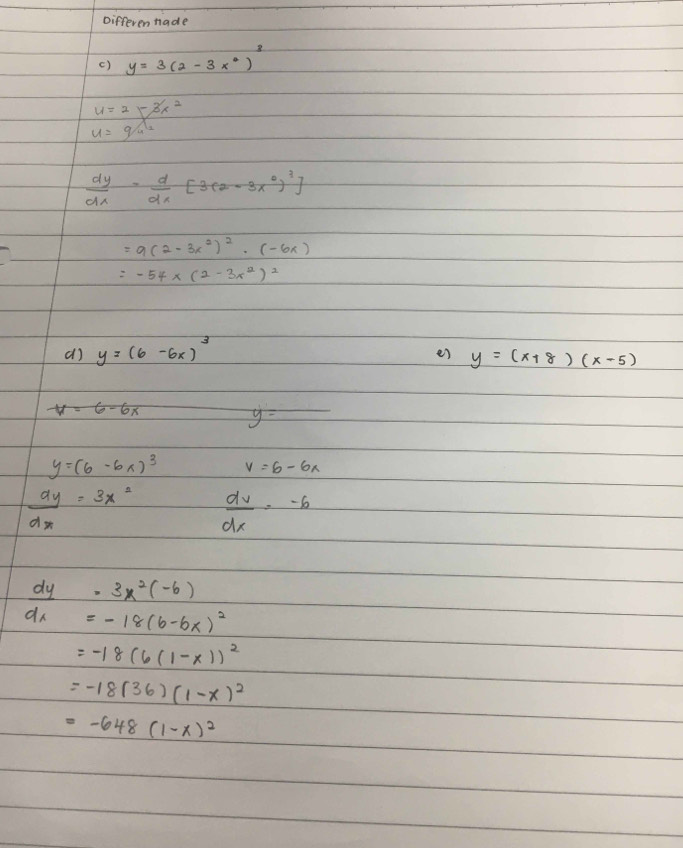 Differentiade
c) y = 3(2 - 3x²)³
u = 2 - 3x²
u =
dy/dx = d/dx [3(2 - 3x²)³]
= 9(2 - 3x²)² . (-6x)
= -54x(2 - 3x²)²
d) y = (6 - 6x)³
e) y = (x+8)(x-5)
v = 6 - 6x y =
y = (6 - 6x)³ v = 6 - 6x
dy/dx = 3x² dv/dx = -6
dy/dx = 3x²(-6)
= -18(6-6x)²
= -18(6(1-x))²
= -18(36)(1-x)²
= -648(1-x)²